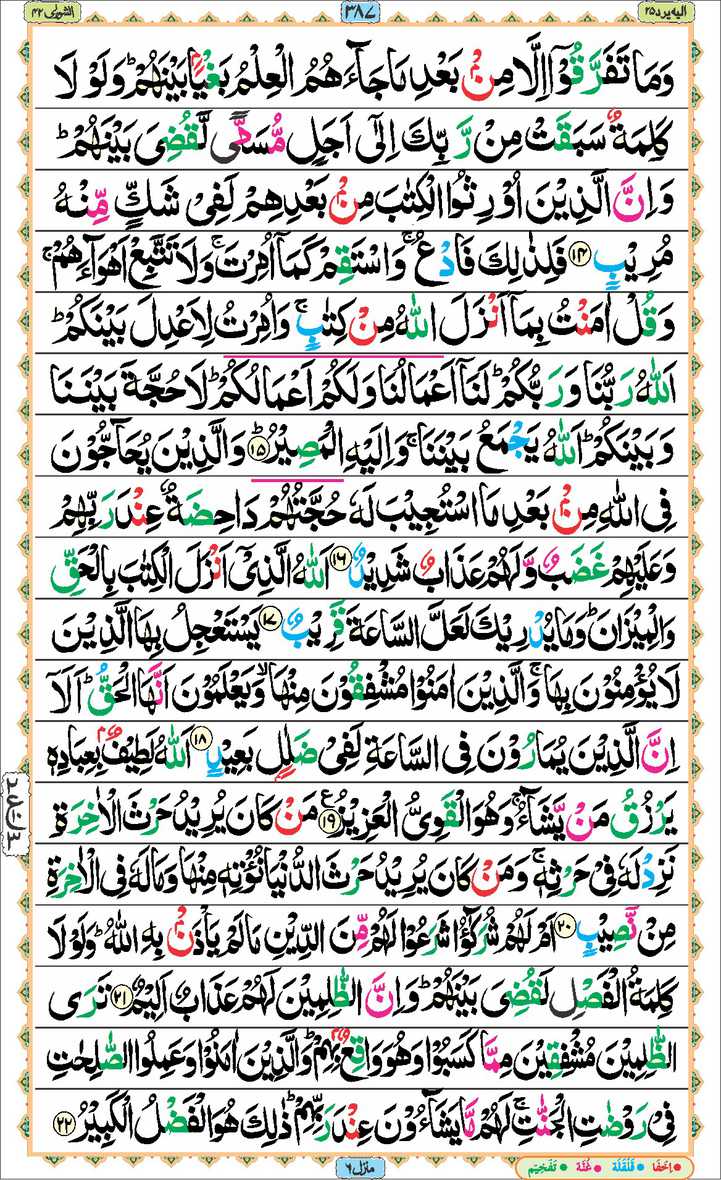 الشورٰى ۴۲
۳۸۷
الیه یرد ۲۵
وَمَا تَفَرَّقُوْۤا اِلَّا مِنْۢ بَعْدِ مَا جَآءَهُمُ الْعِلْمُ بَغْيًۢا بَيْنَهُمْ ؕ وَلَوْ لَا
كَلِمَةٌ سَبَقَتْ مِنْ رَّبِّكَ اِلٰۤى اَجَلٍ مُّسَمًّى لَّقُضِیَ بَيْنَهُمْ ؕ
وَاِنَّ الَّذِيْنَ اُوْرِثُوا الْكِتٰبَ مِنْۢ بَعْدِهِمْ لَفِیْ شَكٍّ مِّنْهُ
مُرِيْبٍ ۱۴ فَلِذٰلِكَ فَادْعُ ۚ وَاسْتَقِمْ كَمَاۤ اُمِرْتَ ۚ وَلَا تَتَّبِعْ اَهْوَآءَهُمْ ۚ
وَقُلْ اٰمَنْتُ بِمَاۤ اَنْزَلَ اللّٰهُ مِنْ كِتٰبٍ ۚ وَاُمِرْتُ لِاَعْدِلَ بَيْنَكُمْ ؕ
اَللّٰهُ رَبُّنَا وَرَبُّكُمْ ؕ لَنَاۤ اَعْمَالُنَا وَلَكُمْ اَعْمَالُكُمْ ؕ لَا حُجَّةَ بَيْنَنَا
وَبَيْنَكُمْ ؕ اَللّٰهُ يَجْمَعُ بَيْنَنَا ۚ وَاِلَيْهِ الْمَصِيْرُ ؕ ۱۵ وَالَّذِيْنَ يُحَآجُّوْنَ
فِی اللّٰهِ مِنْۢ بَعْدِ مَا اسْتُجِيْبَ لَهٗ حُجَّتُهُمْ دَاحِضَةٌ عِنْدَ رَبِّهِمْ
وَعَلَيْهِمْ غَضَبٌ وَّلَهُمْ عَذَابٌ شَدِيْدٌ ۱۶ اَللّٰهُ الَّذِیْۤ اَنْزَلَ الْكِتٰبَ بِالْحَقِّ
وَالْمِيْزَانَ ؕ وَمَا يُدْرِيْكَ لَعَلَّ السَّاعَةَ قَرِيْبٌ ۱۷ يَسْتَعْجِلُ بِهَا الَّذِيْنَ
لَا يُؤْمِنُوْنَ بِهَا ۚ وَالَّذِيْنَ اٰمَنُوْا مُشْفِقُوْنَ مِنْهَا ۙ وَيَعْلَمُوْنَ اَنَّهَا الْحَقُّ ؕ اَلَاۤ
اِنَّ الَّذِيْنَ يُمَارُوْنَ فِی السَّاعَةِ لَفِیْ ضَلٰلٍۭ بَعِيْدٍ ۱۸ اَللّٰهُ لَطِيْفٌۢ بِعِبَادِهٖ
يَرْزُقُ مَنْ يَّشَآءُ ۚ وَهُوَ الْقَوِیُّ الْعَزِيْزُ ۱۹ مَنْ كَانَ يُرِيْدُ حَرْثَ الْاٰخِرَةِ
نَزِدْ لَهٗ فِیْ حَرْثِهٖ ۚ وَمَنْ كَانَ يُرِيْدُ حَرْثَ الدُّنْيَا نُؤْتِهٖ مِنْهَا وَمَا لَهٗ فِی الْاٰخِرَةِ
مِنْ نَّصِيْبٍ ۲۰ اَمْ لَهُمْ شُرَكٰٓؤُا شَرَعُوْا لَهُمْ مِّنَ الدِّيْنِ مَا لَمْ يَاْذَنْۢ بِهِ اللّٰهُ ؕ وَلَوْ لَا
كَلِمَةُ الْفَصْلِ لَقُضِیَ بَيْنَهُمْ ؕ وَاِنَّ الظّٰلِمِيْنَ لَهُمْ عَذَابٌ اَلِيْمٌ ۲۱ تَرَی
الظّٰلِمِيْنَ مُشْفِقِيْنَ مِمَّا كَسَبُوْا وَهُوَ وَاقِعٌۢ بِهِمْ ؕ وَالَّذِيْنَ اٰمَنُوْا وَعَمِلُوا الصّٰلِحٰتِ
فِیْ رَوْضٰتِ الْجَنّٰتِ ۚ لَهُمْ مَّا يَشَآءُوْنَ عِنْدَ رَبِّهِمْ ؕ ذٰلِكَ هُوَ الْفَضْلُ الْكَبِيْرُ ۲۲
منزل ۶
اِخفَا قَلقَلَة غُنَّة تَفخِيم